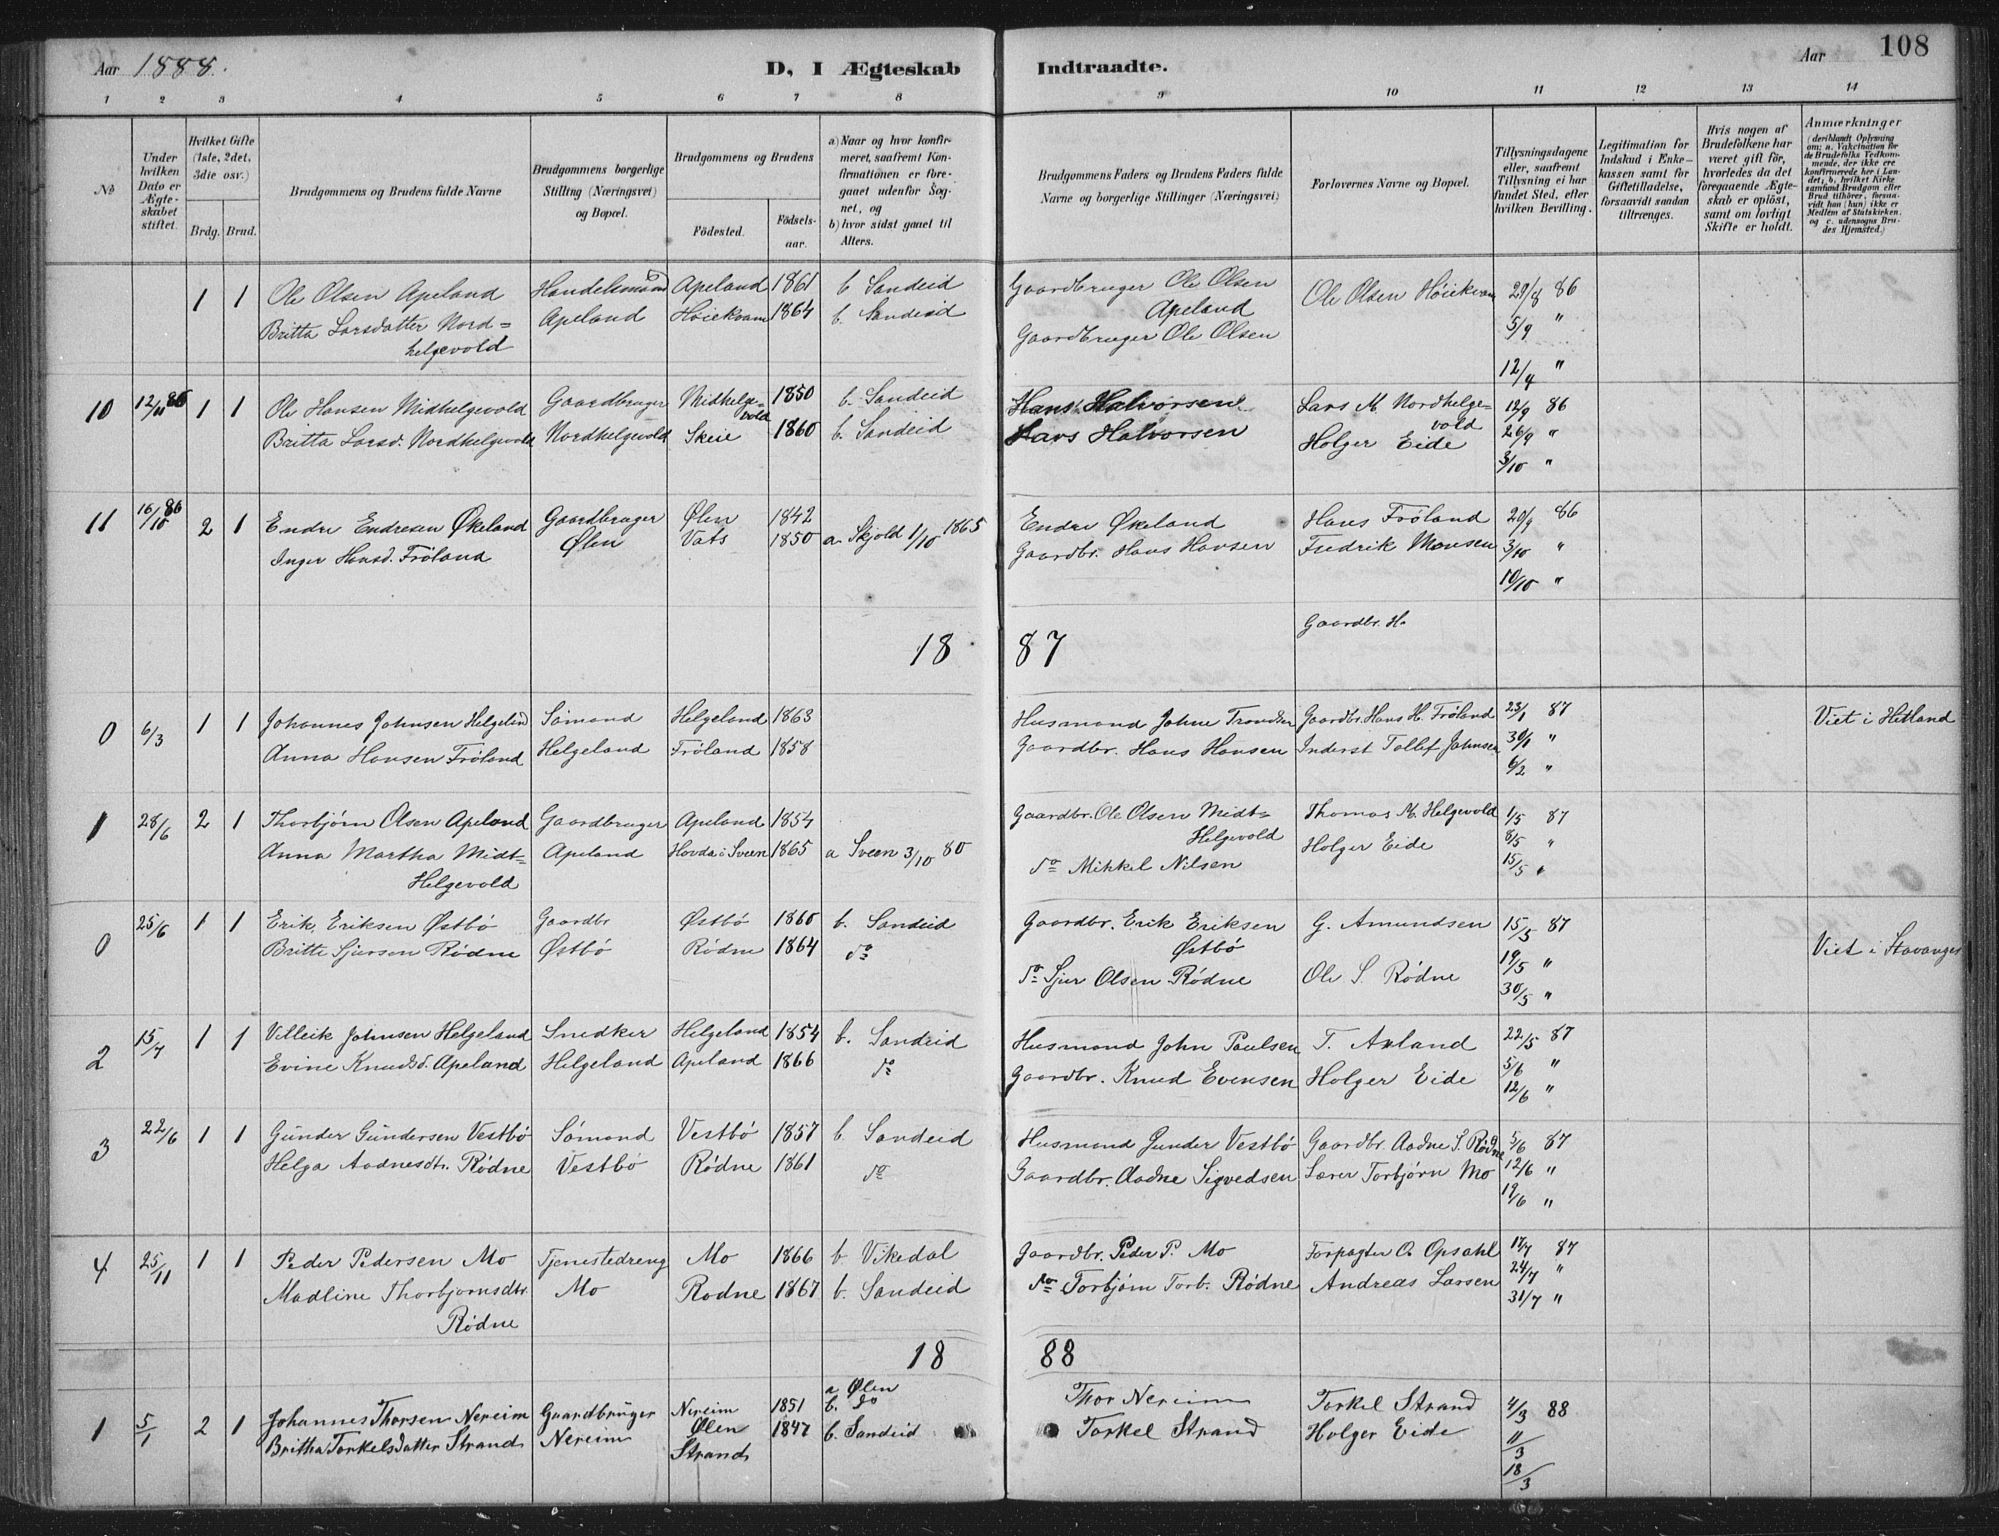 Aar 1888.
D, I Ægteskab Indtraadte.
Aar 108
1 2 3 4 5 6 7 8 9 10 11 12 13 14
No
Under hvilken Dato er Ægteskabet stiftet.
Hvilket Gifte (1ste, 2det, 3die osv.)
Brdg. Brud.
Brudgommens og Brudens fulde Navne
Brudgommens borgerlige Stilling (Næringsvei) og Bopæl.
Brudgommens og Brudens
Födested. Födselsaar.
a) Naar og hvor konfirmeret, saafremt Konfirmationen er foregaaet udenfor Sognet, og
b) hvor sidst gaaet til Alters.
Brudgommens Faders og Brudens Faders fulde Navne og borgerlige Stillinger (Næringsvei)
Forlovernes Navne og Bopæl.
Tillysningsdagene eller, saafremt Tillysning ei har fundet Sted, efter hvilken Bevilling.
Legitimation for Indskud i Enkekassen samt for Giftetilladelse, forsaavidt saadan tiltrænges.
Hvis nogen af Brudefolkene har været gift för, hvorledes da det foregaaende Ægteskab er oplöst, samt om lovligt Skifte er holdt.
Anmærkninger (deriblandt Oplysning om: a. Vakcination for de Brudefolks Vedkommende, der ikke ere konfirmerede her i Landet; b. hvilket Kirkesamfund Brudgom eller Brud tilhörer, forsaavidt han (hun) ikke er Medlem af Statskirken, og c. udensogns Brudes Hjemsted.)
1 1 Ole Olsen Apeland Handelsmand Apeland 1861 b Sandeid Gaardbruger Ole Olsen Apeland Ole Olsen Höiekvam 29/8 86
Britta Larsdatter Nordhelgevold Apeland Höiekvam 1864 b. Sandeid Gaardbruger Ole Olsen 5/9 "
12/9 "
10 12/11 86 1 1 Ole Hansen Midhelgevold Gaardbruger Midhelgevold 1850 b. Sandeid Hans Halvorsen Lars M. Nordhelgevold 12/9 86
Britta Larsd. Nordhelgevold Nordhelgevold Skeie 1860 b. Sandeid Lars Halvorsen Holger Eide 26/9 "
3/10 "
11 16/10 86 2 1 Endre Endresen Økeland Gaardbruger Ølen 1842 Endre Økeland Hans Fröland 20/9 86
Inger Hansd. Fröland Ølen Vats 1850 a. Skjold 1/10 1865 Gaardbr. Hans Hansen Fredrik Monsen 3/10 "
10/10 "
Gaardbr. H.
18 87
0 6/3 1 1 Johannes Johnsen Helgeland Sömand Helgeland 1863 Husmand Johne Trondsen Gaardbr. Hans H. Fröland 23/1 87 Viet i Hetland
Anna Hansen Fröland Helgeland Fröland 1858 Gaardbr. Hans Hansen Inderst Tollef Johnsen 30/1 "
6/2 "
1 28/6 2 1 Thorbjörn Olsen Apeland Gaardbruger Apeland 1854 Gaardbr. Ole Olsen Midt-Helgevold Thomas M. Helgevold 1/5 87
Anna Martha Midt-Helgevold Apeland Hovda i Sveen 1865 a Sveen 3/10 80 do Mikkel Nilsen Holger Eide 8/5 "
15/5 "
0 25/6 1 1 Erik Eriksen Østbö Gaardbr Østbö 1860 b. Sandeid Gaardbr. Erik Eriksen Østbö G. Amundsen 15/5 87
Britte Sjursen Rödne Østbö Rödne 1864 do do Sjur Olsen Rödne Ole S. Rödne 19/5 " Viet i Stavanger
30/5 "
2 15/7 1 1 Villeik Johnsen Helgeland Snedker Helgeland 1854 b. Sandeid Husmand John Paulsen T. Axland 22/5 87
Evine Knudsd. Apeland Helgeland Apeland 1866 do Gaardbr. Knud Evensen Holger Eide 5/6 "
12/6 "
3 22/6 1 1 Gunder Gundersen Vestbö Sömand Vestbö 1857 b Sandeid Husmand Gunder Vestbö Gaardbr. Aadne S. Rödne 5/6 87
Helga Aadnesdtr. Rödne Vestbö Rödne 1861 do Gaardbr. Aadne Sigvedsen Lærer Torbjörn Mo 12/6 "
19/6 "
4 25/11 1 1 Peder Pedersen Mo Tjenestedreng Mo 1866 b. Vikedal Gaardbr. Peder P. Mo Forpagter O. Opsahl 17/7 87
Madline Thorbjornsdtr. Rödne Mo Rodne 1867 b. Sandeid do Torbjörn Torb. Rödne Andreas Larsen 24/7 "
31/7 "
18 88
1 5/1 2 1 Johannes Thorsen Nereim Gaardbruger Nereim Ølen 1851 a Ølen b. do Thor Nereim Torkel Strand 4/3 88
Britha Torkelsdatter Strand Nereim Strand 1847 b. Sandeid Torkel Strand Holger Eide 11/3
18/3